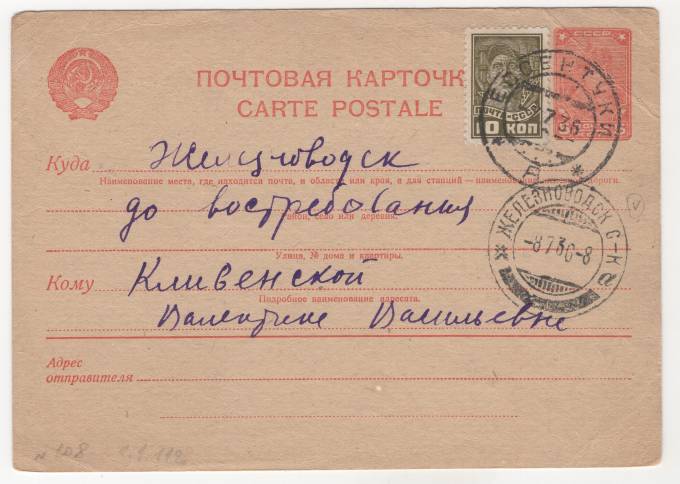 ПОЧТОВАЯ КАРТОЧКА
CARTE POSTALE
СССР
ПОЧТА СССР
10 КОП
ЕССЕНТУКИ
7 36
Куда Железноводск
Наименование места, где находится почта, и области или края, а для станций — наименование дороги.
до востребования
Район, село или деревня.
ЖЕЛЕЗНОВОДСК С-К
-8 7 36-8
а
Улица, № дома и квартиры.
Кому Кливенской
Подробное наименование адресата.
Валентине Васильевне
Адрес
отправителя
№ 108